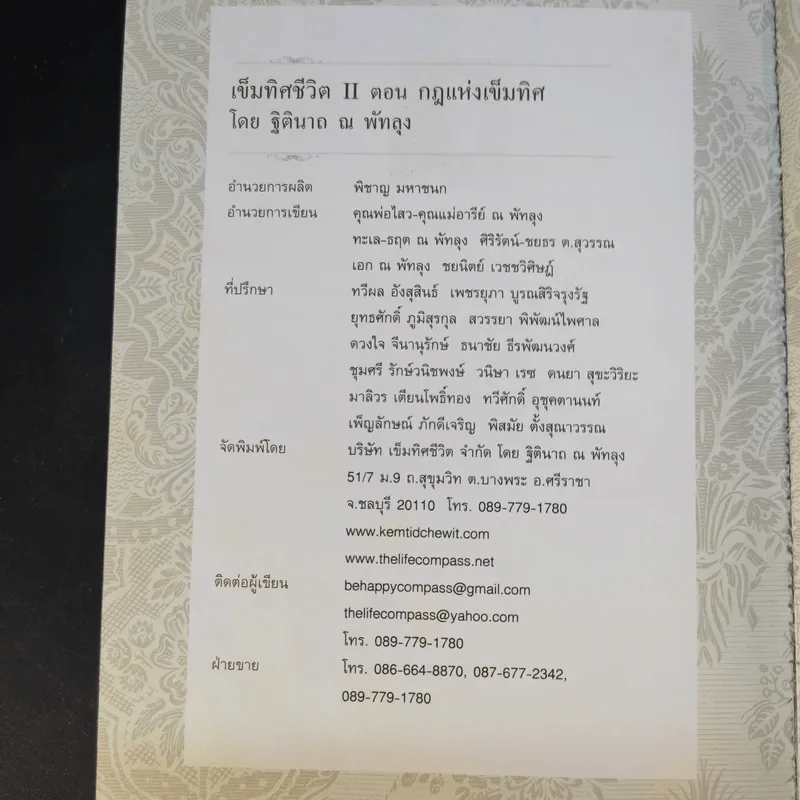 เข็มทิศชีวิต II ตอน กฎแห่งเข็มทิศ
โดย ฐิตินาถ ณ พัทลุง
อำนวยการผลิต พิชาญ มหาชนก
อำนวยการเขียน คุณพ่อไสว-คุณแม่อารีย์ ณ พัทลุง
ทะเล-ธฤต ณ พัทลุง ศิริรัตน์-ชยธร ต.สุวรรณ
เอก ณ พัทลุง ชยนิตย์ เวชชวิศิษฏ์
ที่ปรึกษา ทวีผล อังสุสินธ์ เพชรยุภา บูรณสิริจรุงรัฐ
ยุทธศักดิ์ ภูมิสุรกุล สวรรยา พิพัฒน์ไพศาล
ดวงใจ จีนานุรักษ์ ธนาชัย ธีรพัฒนวงศ์
ชุมศรี รักษ์วนิชพงษ์ วนิษา เรซ ดนยา สุขะวิริยะ
มาลิวร เตียนโพธิ์ทอง ทวีศักดิ์ อุชุคตานนท์
เพ็ญลักษณ์ ภักดีเจริญ พิสมัย ตั้งสุณาวรรณ
จัดพิมพ์โดย บริษัท เข็มทิศชีวิต จำกัด โดย ฐิตินาถ ณ พัทลุง
51/7 ม.9 ถ.สุขุมวิท ต.บางพระ อ.ศรีราชา
จ.ชลบุรี 20110 โทร. 089-779-1780
www.kemtidchewit.com
www.thelifecompass.net
ติดต่อผู้เขียน behappycompass@gmail.com
thelifecompass@yahoo.com
โทร. 089-779-1780
ฝ่ายขาย โทร. 086-664-8870, 087-677-2342,
089-779-1780